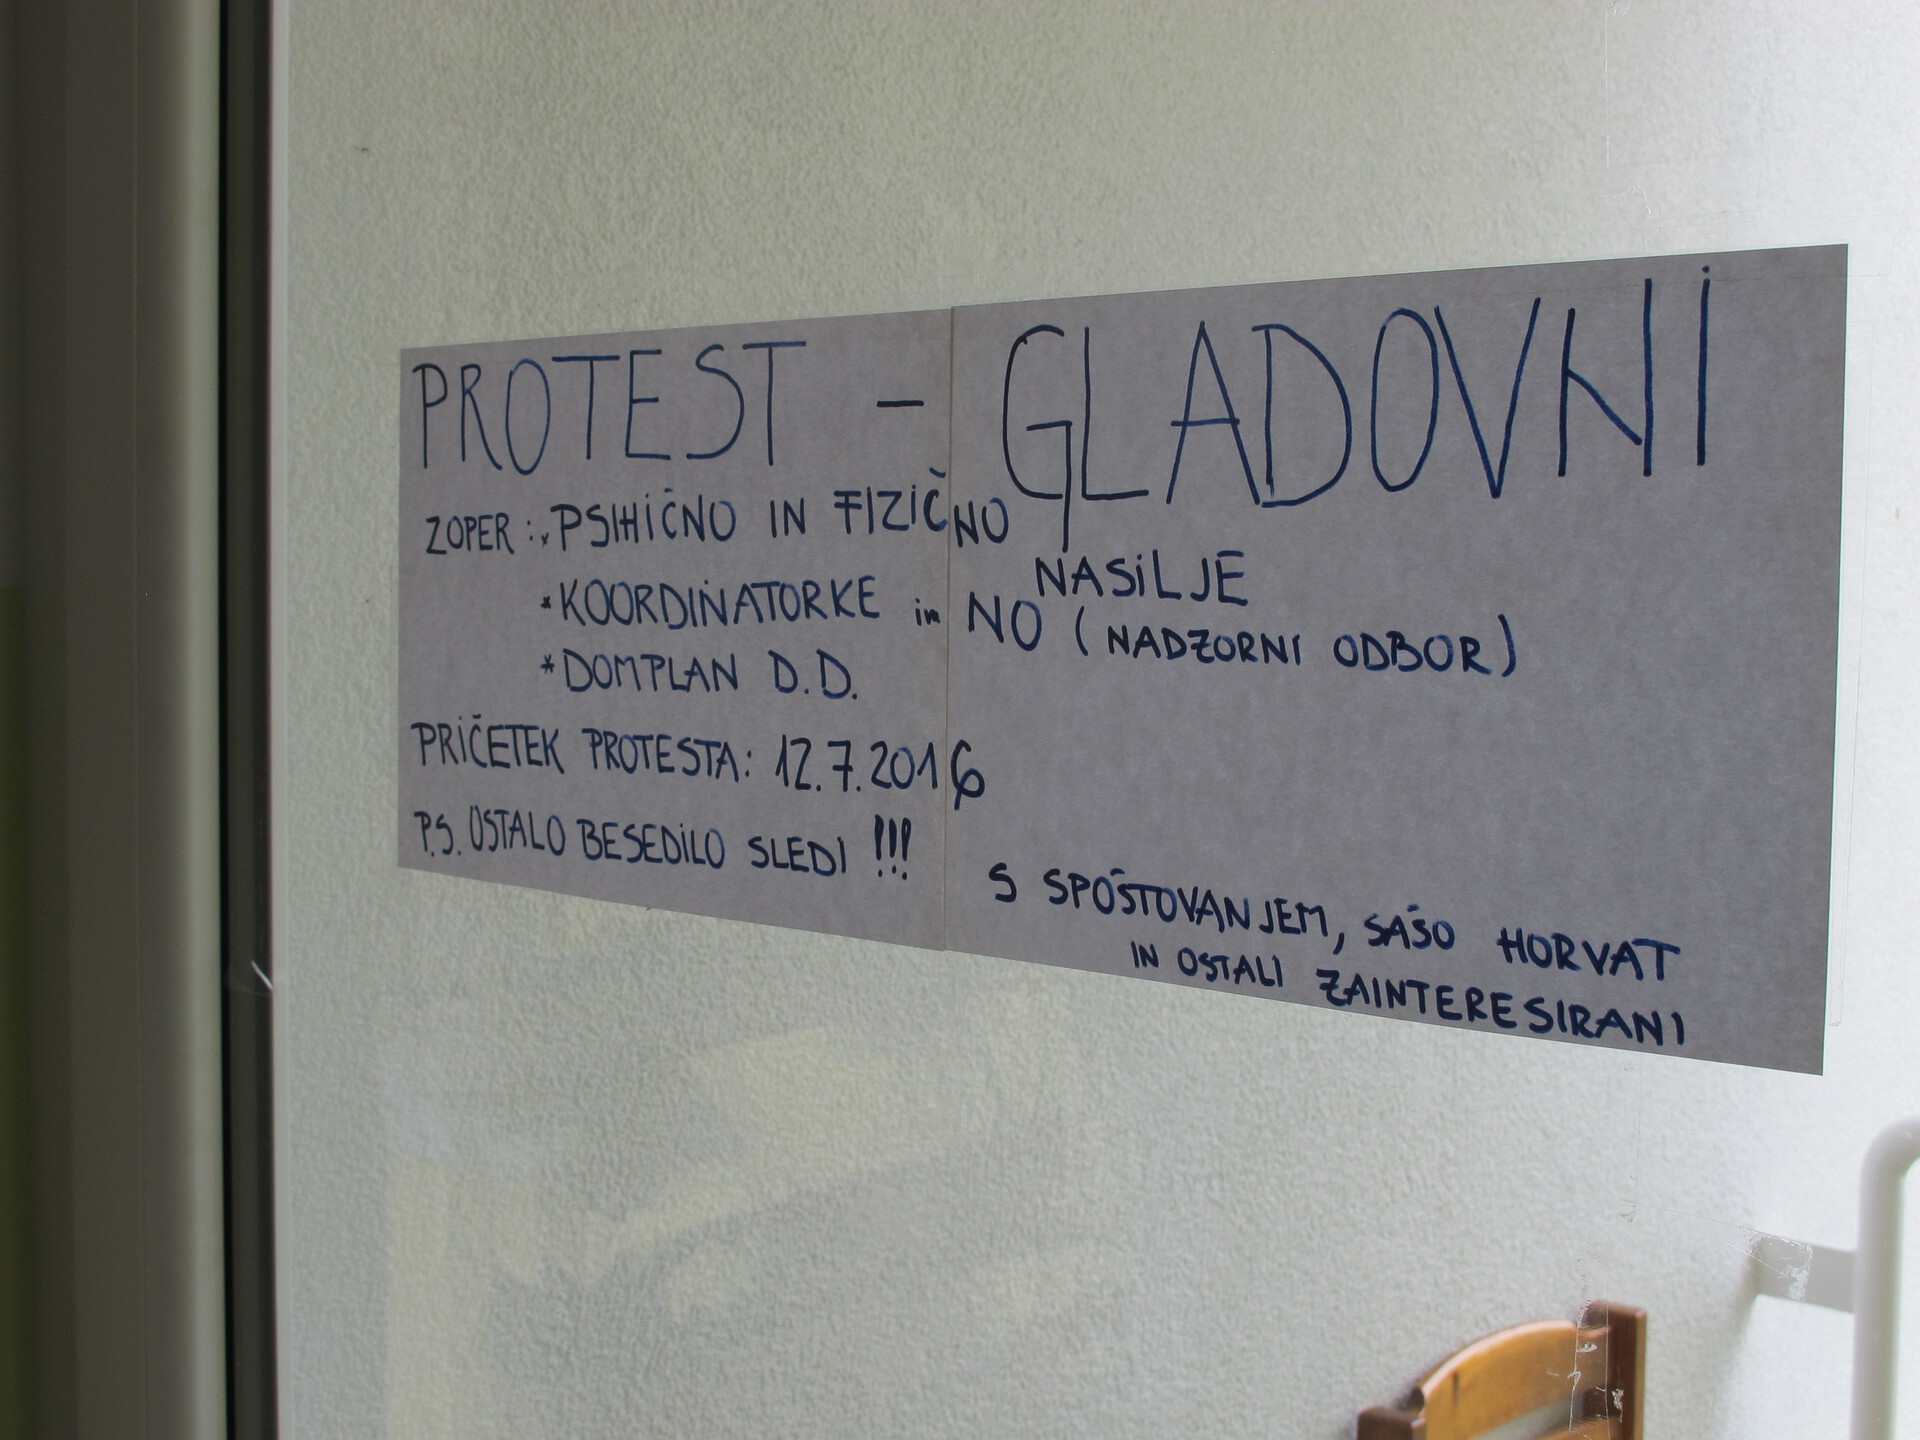 PROTEST - GLADOVNI
ZOPER: * PSIHIČNO IN FIZIČNO NASILJE
* KOORDINATORKE in NO (NADZORNI ODBOR)
* DOMPLAN D.D.
PRIČETEK PROTESTA: 12.7.2016
P.S. OSTALO BESEDILO SLEDI !!!
S SPOŠTOVANJEM, SAŠO HORVAT
IN OSTALI ZAINTERESIRANI